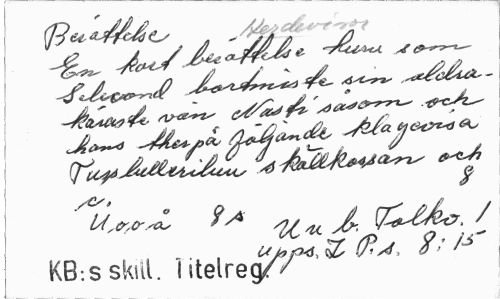 Berättelse Herdevisor
En kort berättelse huru som
Selecond bortmiste sin aldra-
käraste vän Nasti såsom och
hans therpå följande klagevisa
Tuplulleriluu skällkossan och
c. 8
U.o.o.å 8 s
U u b. Tolko. 1
upps. I P.s. 8:15
KB:s skill. Titelreg.